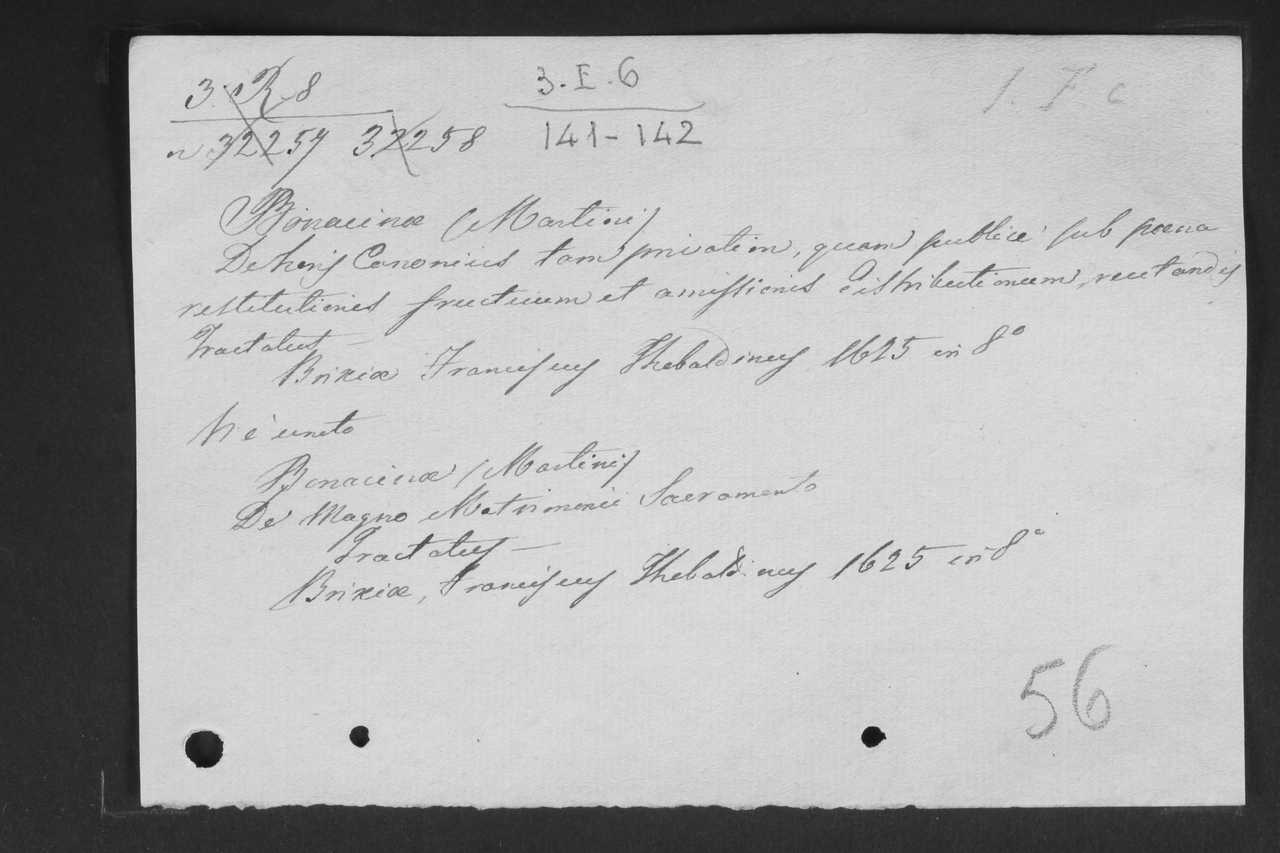 3. R. 8
3. I. 6
1. F c
n 32257 32258
141-142
Bonacinæ (Martini)
De horis Canonicis tam privatim, quam publice sub poena
restitutionis fructuum et amissionis distributionum, recitandis
Tractatus —
Brixiæ Franciscus Thebaldinus 1625 in 8°
Vi è unito
Bonacinæ (Martini)
De Magno Matrimonii Sacramento
Tractatus —
Brixiæ, Franciscus Thebaldinus 1625 in 8°
56